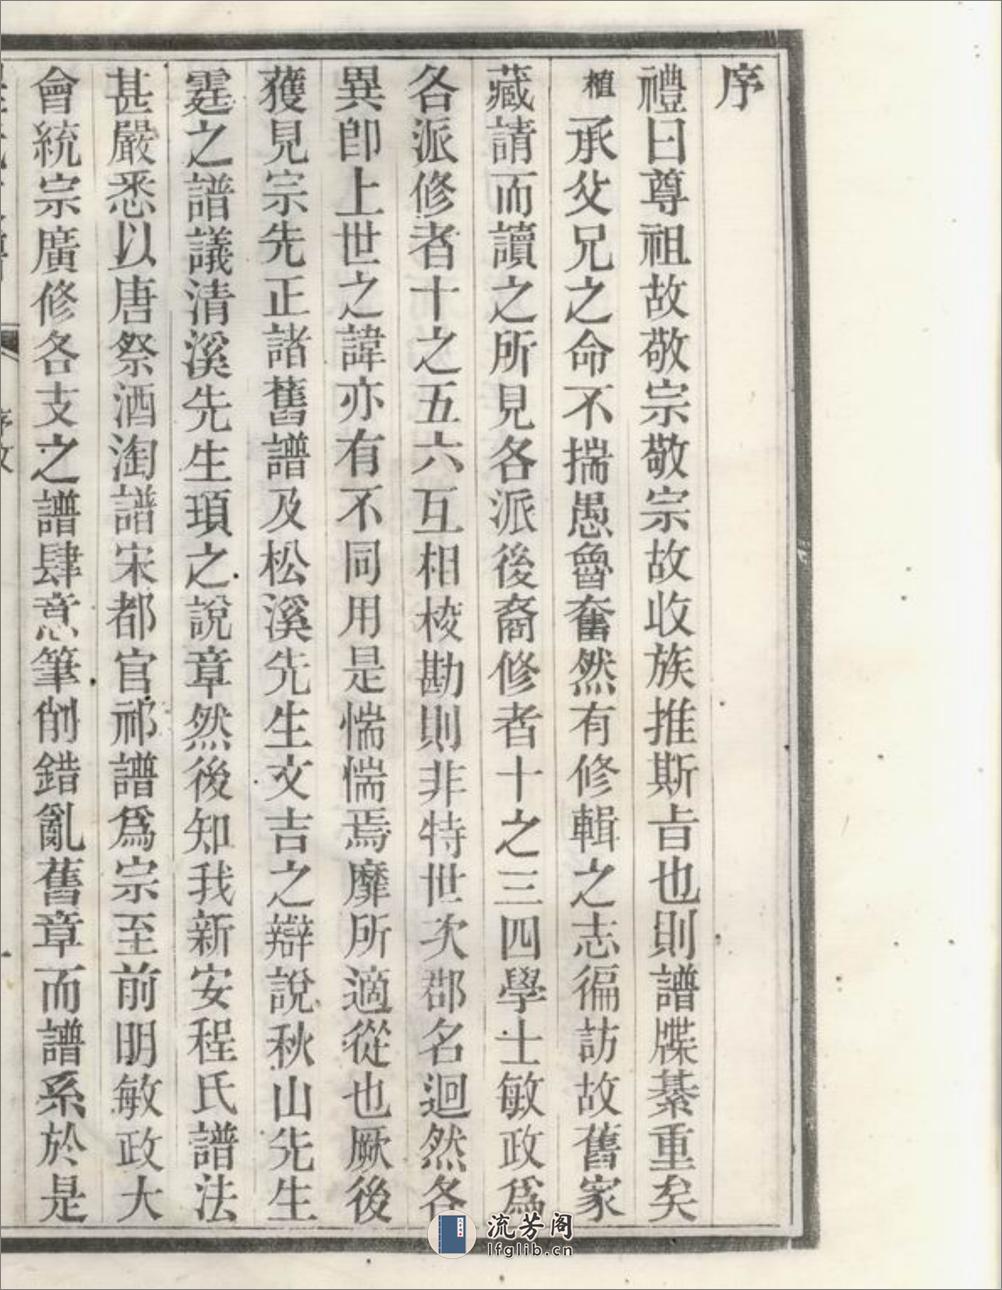 序
禮曰尊祖故敬宗敬宗故收族推斯旨也則譜牒綦重矣
植承父兄之命不揣愚魯奮然有修輯之志徧訪故舊家
藏請而讀之所見各派後裔修者十之三四學士敏政爲
各派修者十之五六互相校勘則非特世次郡名迥然各
異卽上世之諱亦有不同用是惴惴焉靡所適從也厥後
獲見宗先正諸舊譜及松溪先生文吉之辯說秋山先生
霆之譜議清溪先生頊之說章然後知我新安程氏譜法
甚嚴悉以唐祭酒淘譜宋都官祁譜爲宗至前明敏政大
會統宗廣修各支之譜肆意筆削錯亂舊章而譜系於是
序文
一
流芳阁
lfglib.cn